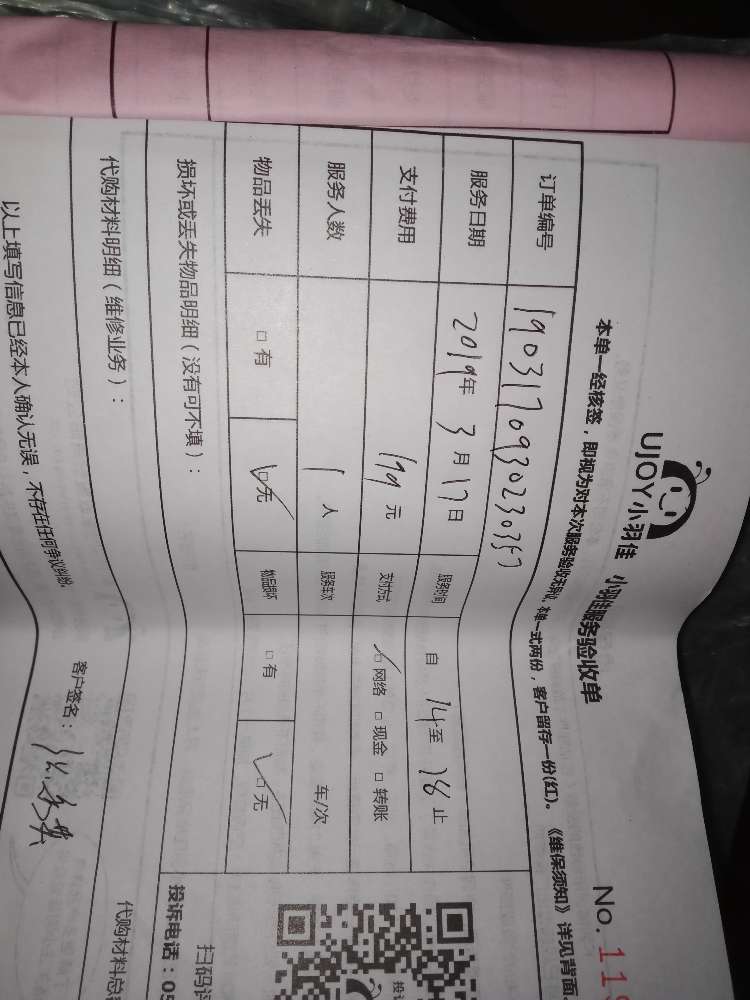 UJOY小羽佳 小羽佳服务验收单
No. 11
本单一经核签，即视为对本次服务验收无异议。本单一式两份，客户留存一份(红)。《维保须知》详见背面
订单编号 1903170930230357
服务日期 2019年 3月 17日 服务时间 自 14至 18止
支付费用 199元 支付方式 ☑网络 □现金 □转账
服务人数 1人 服务车次 车/次
物品丢失 □有 ☑无 物品损坏 □有 ☑无
损坏或丢失物品明细（没有可不填）：
代购材料明细（维修业务）： 代购材料总
以上填写信息已经本人确认无误，不存在任何争议纠纷。
客户签名：
扫码评
投诉电话：05
投诉